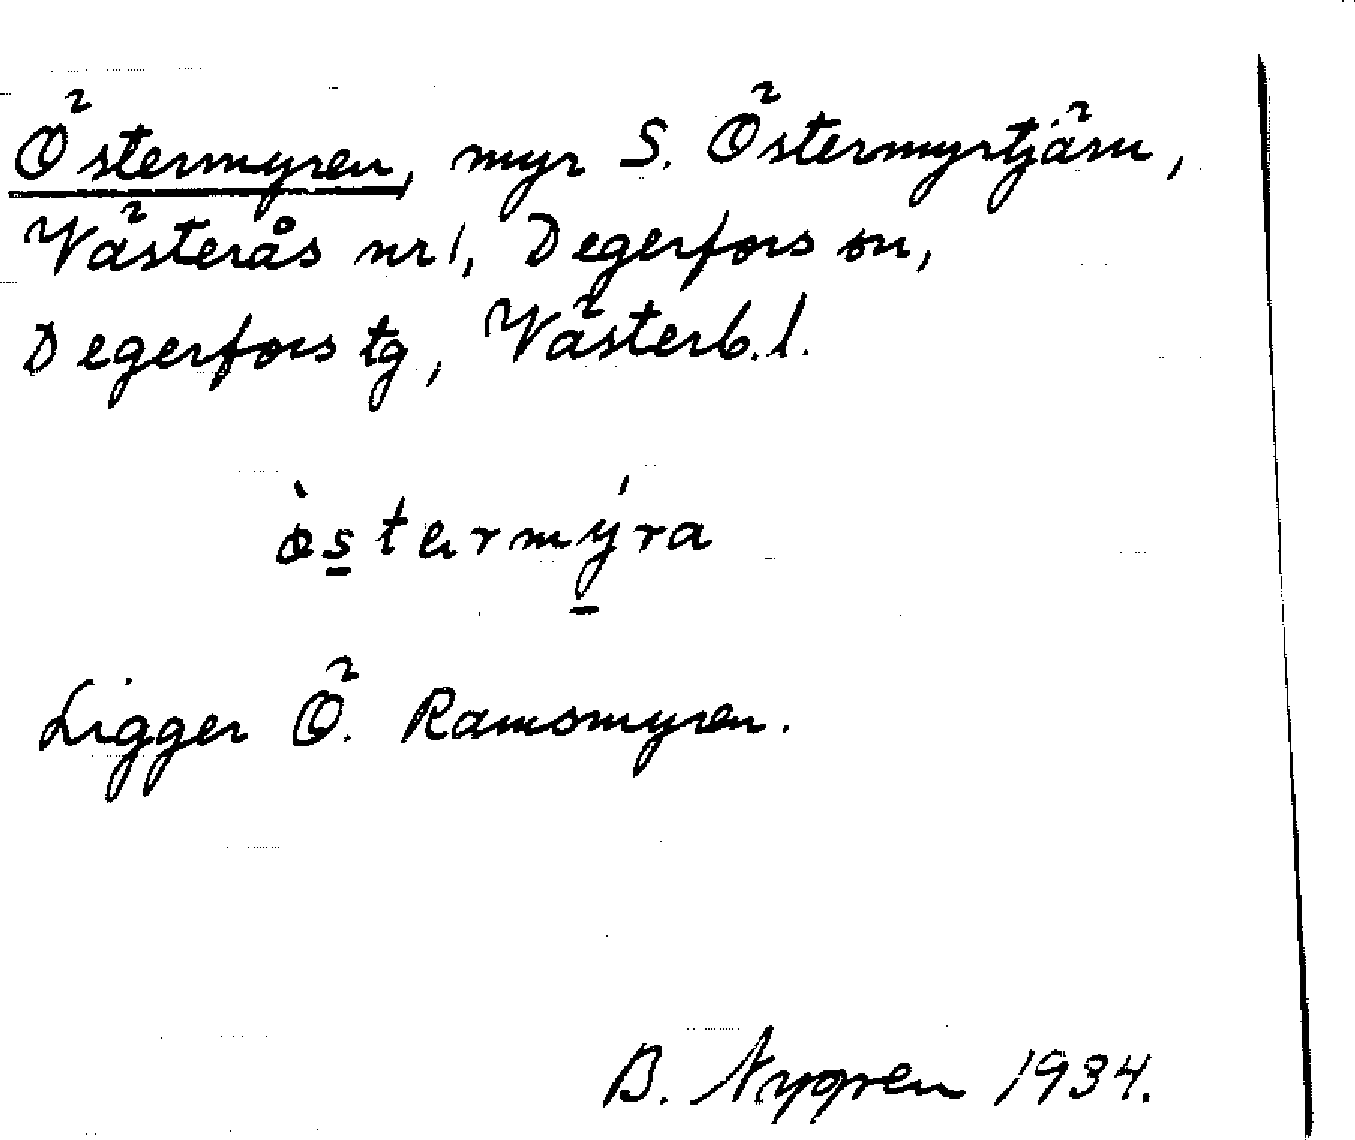 Östermyren, myr S. Östermyrtjärn,
Västerås nr 1, Degerfors sn,
Degerfors tg, Västerb. l.
östermýra
Ligger Ö. Ramsmyren.
B. Nygren 1934.